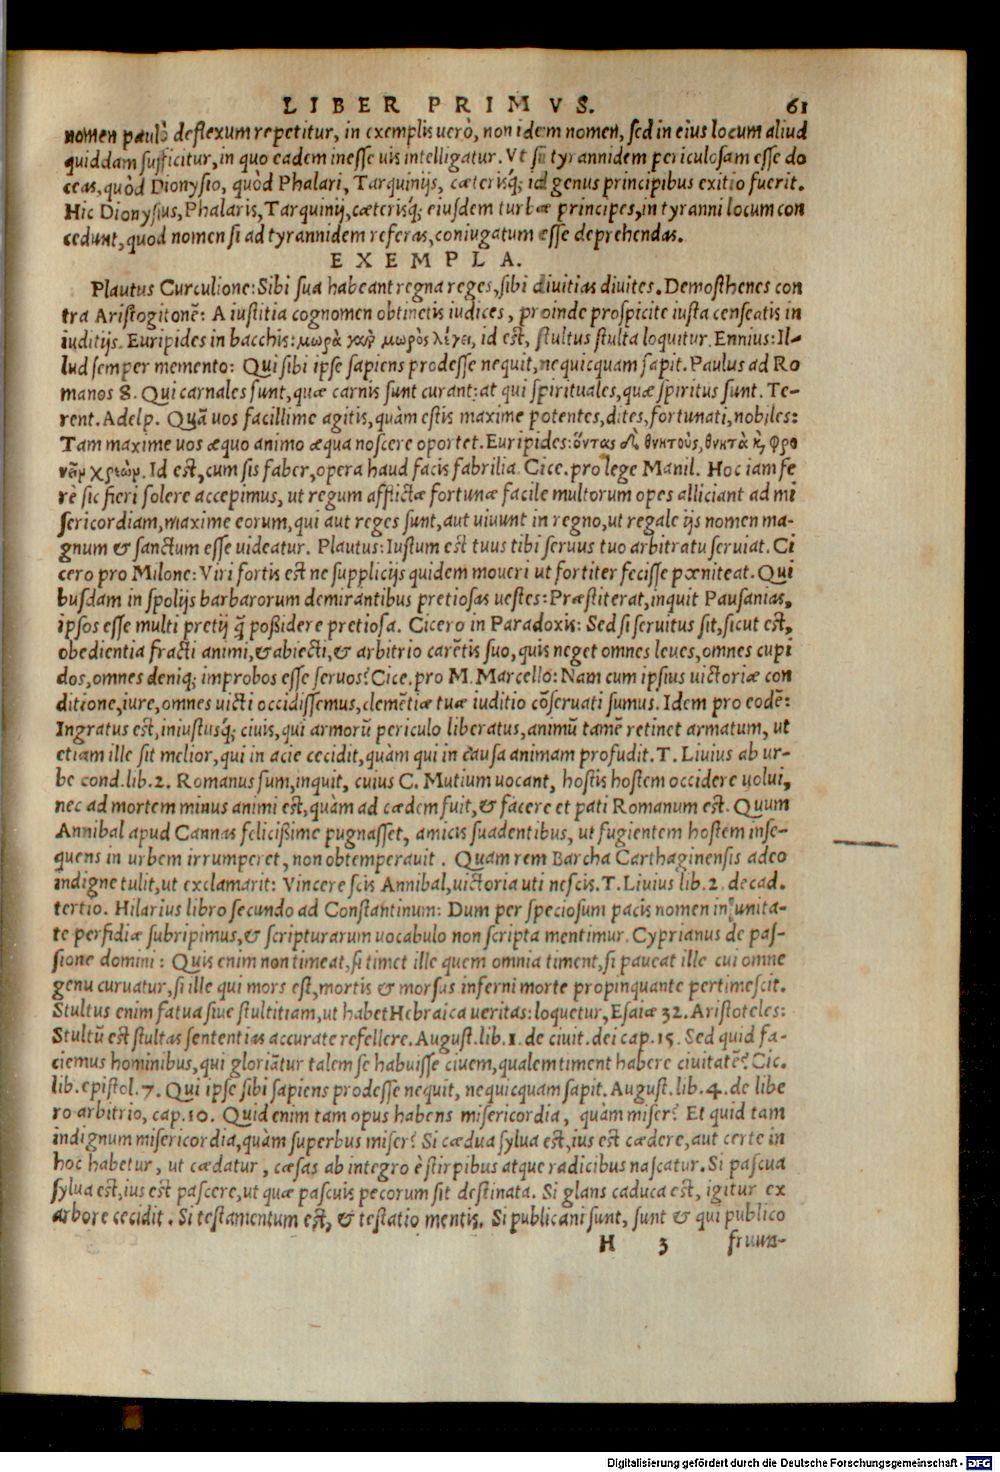 LIBER PRIMVS. 61
nomen paulò deflexum repetitur, in exemplis uerò, non idem nomen, sed in eius locum aliud
quiddam sufficitur, in quo eadem inesse uis intelligatur. Vt si tyrannidem periculosam esse do
ceas, quòd Dionysio, quòd Phalari, Tarquinijs, cæterisq́; id genus principibus exitio fuerit.
Hic Dionysius, Phalaris, Tarquinij, cæterisq́; eiusdem turbæ principes, in tyranni locum con
cedunt, quod nomen si ad tyrannidem referas, coniugatum esse deprehendas.
EXEMPLA.
Plautus Curculione: Sibi sua habeant regna reges, sibi diuitias diuites. Demosthenes con
tra Aristogitonē: A iustitia cognomen obtinetis iudices, proinde prospicite iusta censeatis in
iuditijs. Euripides in bacchis: μωρὰ γὰρ μωρὸς λέγει, id est, stultus stulta loquitur. Ennius: Il-
lud semper memento: Qui sibi ipse sapiens prodesse nequit, nequicquam sapit. Paulus ad Ro
manos 8. Qui carnales sunt, quæ carnis sunt curant: at qui spirituales, quæ spiritus sunt. Te-
rent. Adelp. Quā uos facillime agitis, quàm estis maxime potentes, dites, fortunati, nobiles:
Tam maxime uos æquo animo æqua noscere oportet. Euripides: ὄντας δὲ θνητοὺς, θνητὰ καὶ φρο
νεῖν χρεών. Id est, cum sis faber, opera haud facis fabrilia. Cice. pro lege Manil. Hoc iam fe
rè sic fieri solere accepimus, ut regum afflictæ fortunæ facile multorum opes alliciant ad mi
sericordiam, maxime eorum, qui aut reges sunt, aut uiuunt in regno, ut regale ijs nomen ma-
gnum & sanctum esse uideatur. Plautus: Iustum est tuus tibi seruus tuo arbitratu seruiat. Ci
cero pro Milone: Viri fortis est ne supplicijs quidem moueri ut fortiter fecisse pœniteat. Qui
busdam in spolijs barbarorum demirantibus pretiosas uestes: Præstiterat, inquit Pausanias,
ipsos esse multi pretij q̃ poßidere pretiosa. Cicero in Paradoxis: Sed si seruitus sit, sicut est,
obedientia fracti animi, & abiecti, & arbitrio carētis suo, quis neget omnes leues, omnes cupi
dos, omnes deniq; improbos esse seruos? Cice. pro M. Marcello: Nam cum ipsius uictoriæ con
ditione, iure, omnes uicti occidissemus, clemētiæ tuæ iuditio cōseruati sumus. Idem pro eodē:
Ingratus est, iniustusq́; ciuis, qui armorū periculo liberatus, animū tamē retinet armatum, ut
etiam ille sit melior, qui in acie cecidit, quàm qui in causa animam profudit. T. Liuius ab ur-
be cond. lib. 2. Romanus sum, inquit, cuius C. Mutium uocant, hostis hostem occidere uolui,
nec ad mortem minus animi est, quàm ad cædem fuit, & facere et pati Romanum est. Quum
Annibal apud Cannas felicißime pugnasset, amicis suadentibus, ut fugientem hostem inse-
quens in urbem irrumperet, non obtemperauit. Quam rem Barcha Carthaginensis adeo
indigne tulit, ut exclamarit: Vincere scis Annibal, uictoria uti nescis. T. Liuius lib. 2. decad.
tertio. Hilarius libro secundo ad Constantinum: Dum per speciosum pacis nomen in unita-
te perfidiæ subripimus, & scripturarum uocabulo non scripta mentimur. Cyprianus de pas-
sione domini: Quis enim non timeat, si timet ille quem omnia timent, si paueat ille cui omne
genu curuatur, si ille qui mors est, mortis & morsus inferni morte propinquante pertimescit.
Stultus enim fatua siue stultitiam, ut habet Hebraica ueritas: loquetur, Esaiæ 32. Aristoteles:
Stultū est stultas sententias accurate refellere. August. lib. 1. de ciuit. dei cap. 15. Sed quid fa-
ciemus hominibus, qui gloriātur talem se habuisse ciuem, qualem timent habere ciuitatē? Cic.
lib. epistol. 7. Qui ipse sibi sapiens prodesse nequit, nequicquam sapit. August. lib. 4. de libe
ro arbitrio, cap. 10. Quid enim tam opus habens misericordia, quàm miser? Et quid tam
indignum misericordia, quàm superbus miser? Si cædua sylua est, ius est cædere, aut certe in
hoc habetur, ut cædatur, cæsas ab integro è stirpibus atque radicibus nascatur. Si pascua
sylua est, ius est pascere, ut quæ pascuis pecorum sit destinata. Si glans caduca est, igitur ex
arbore cecidit. Si testamentum est, & testatio mentis. Si publicani sunt, sunt & qui publico
H 3 fruun-
Digitalisierung gefördert durch die Deutsche Forschungsgemeinschaft - DFG